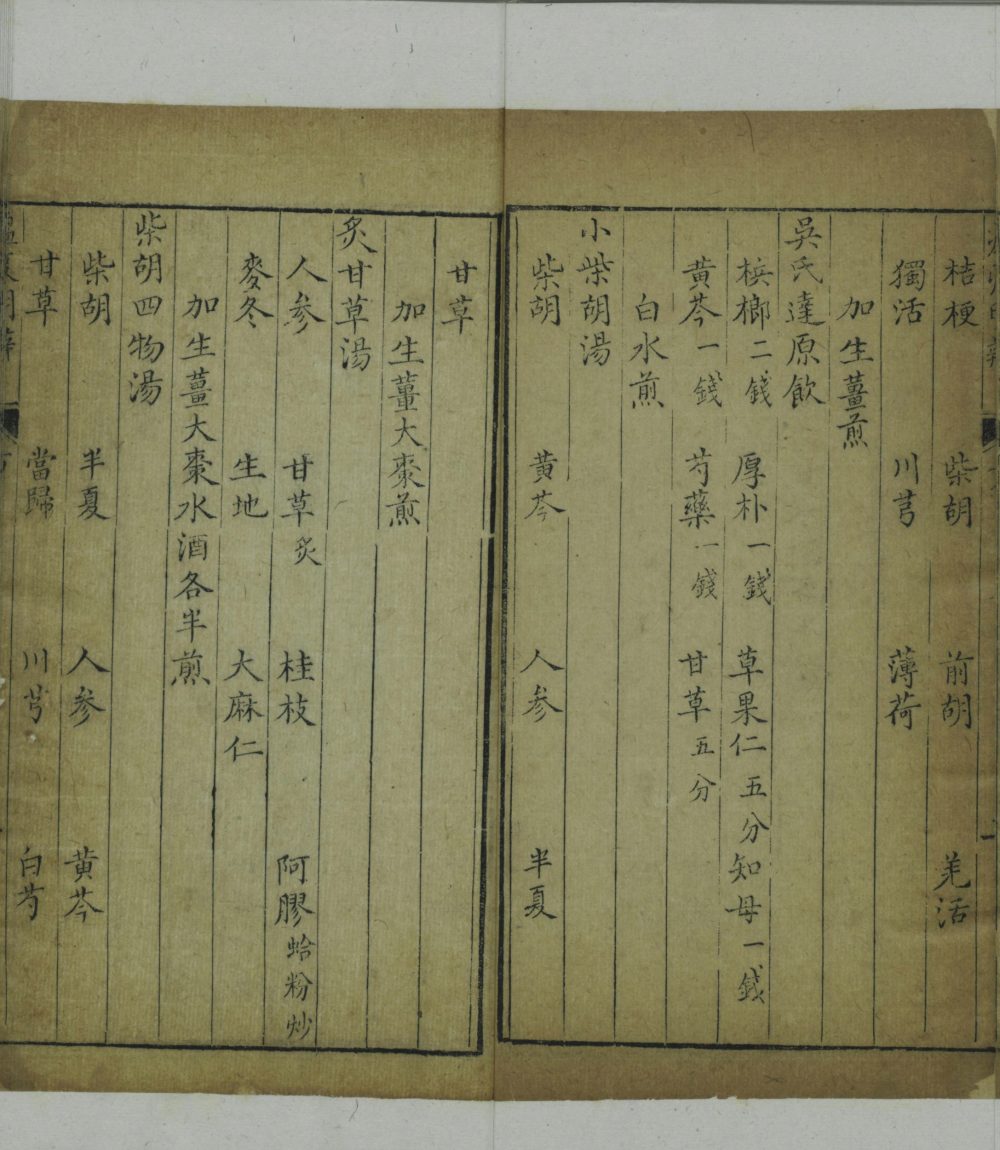 桔梗 柴胡 前胡 羌活
獨活 川芎 薄荷
加生薑煎
吳氏達原飲
檳榔二錢 厚朴一錢 草果仁五分 知母一錢
黃芩一錢 芍藥一錢 甘草五分
白水煎
小柴胡湯
柴胡 黃芩 人參 半夏
甘草
加生薑大棗煎
炙甘草湯
人參 甘草炙 桂枝 阿膠蛤粉炒
麥冬 生地 大麻仁
加生薑大棗水酒各半煎
柴胡四物湯
柴胡 半夏 人參 黃芩
甘草 當歸 川芎 白芍